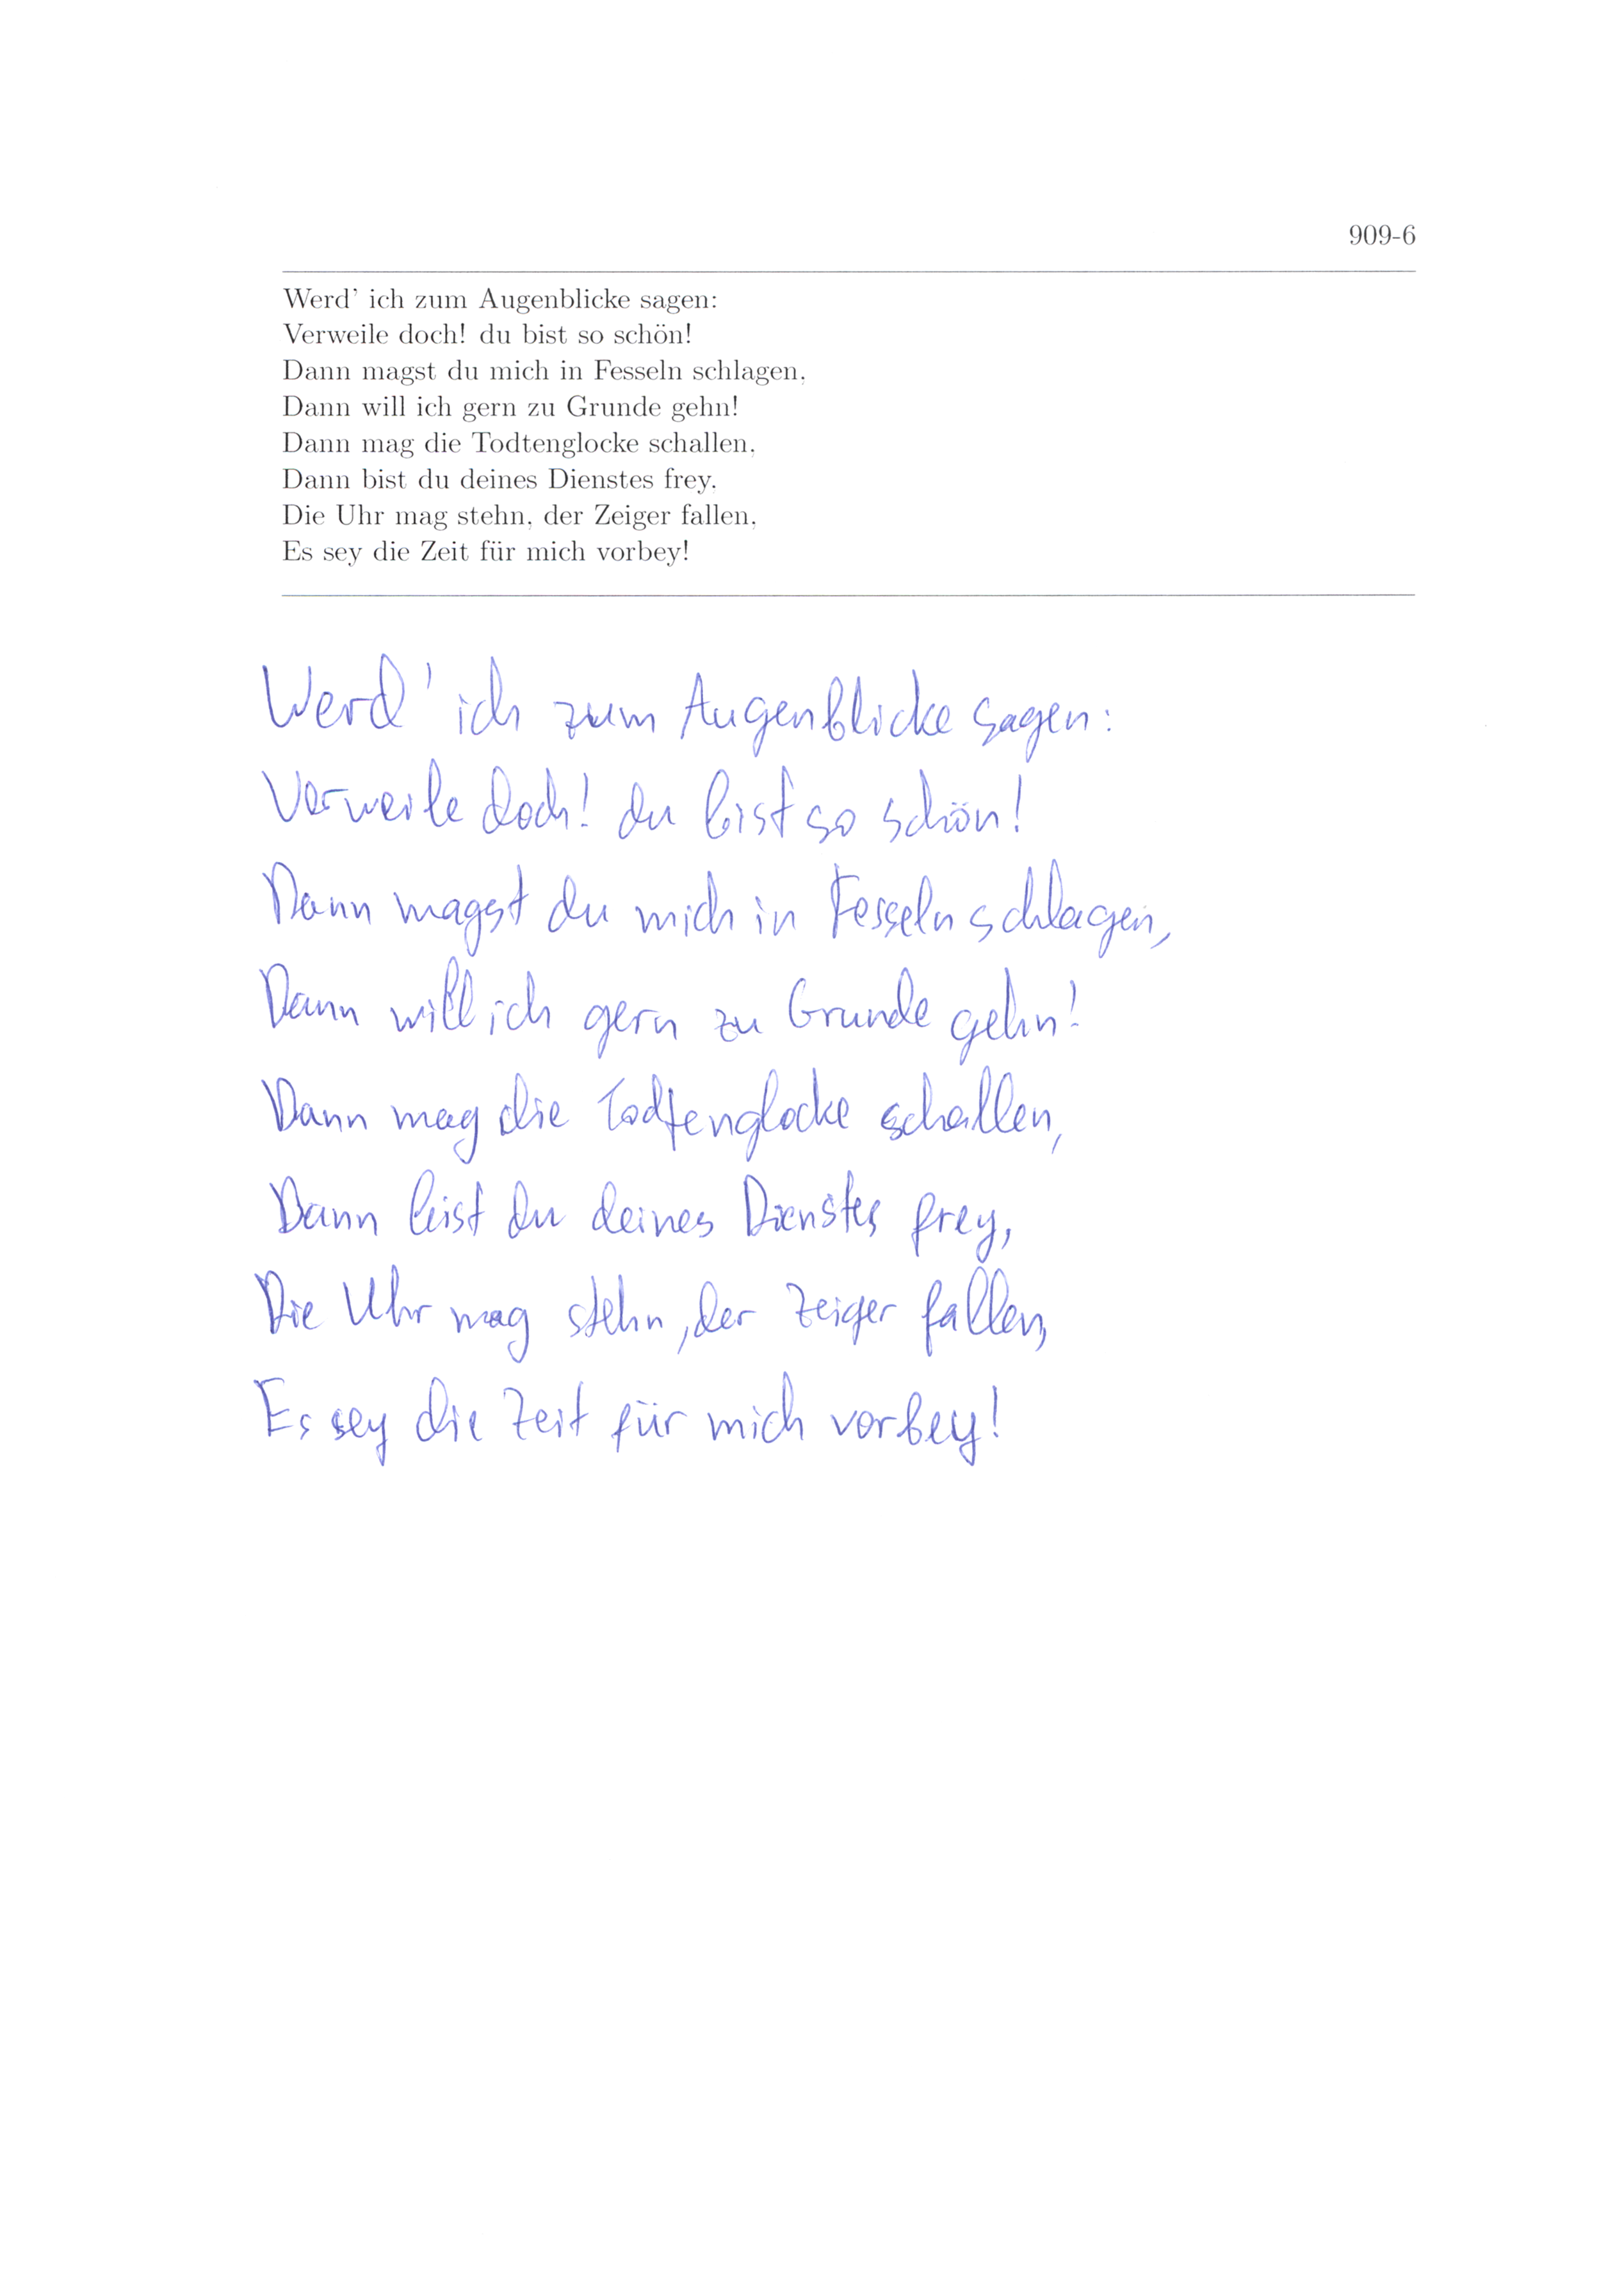 909-6
Werd' ich zum Augenblicke sagen:
Verweile doch! du bist so schön!
Dann magst du mich in Fesseln schlagen,
Dann will ich gern zu Grunde gehn!
Dann mag die Todtenglocke schallen,
Dann bist du deines Dienstes frey,
Die Uhr mag stehn, der Zeiger fallen,
Es sey die Zeit für mich vorbey!
Werd' ich zum Augenblicke sagen:
Verweile doch! du bist so schön!
Dann magst du mich in Fesseln schlagen,
Dann will ich gern zu Grunde gehn!
Dann mag die Todtenglocke schallen,
Dann bist du deines Dienstes frey,
Die Uhr mag stehn, der Zeiger fallen,
Es sey die Zeit für mich vorbey!